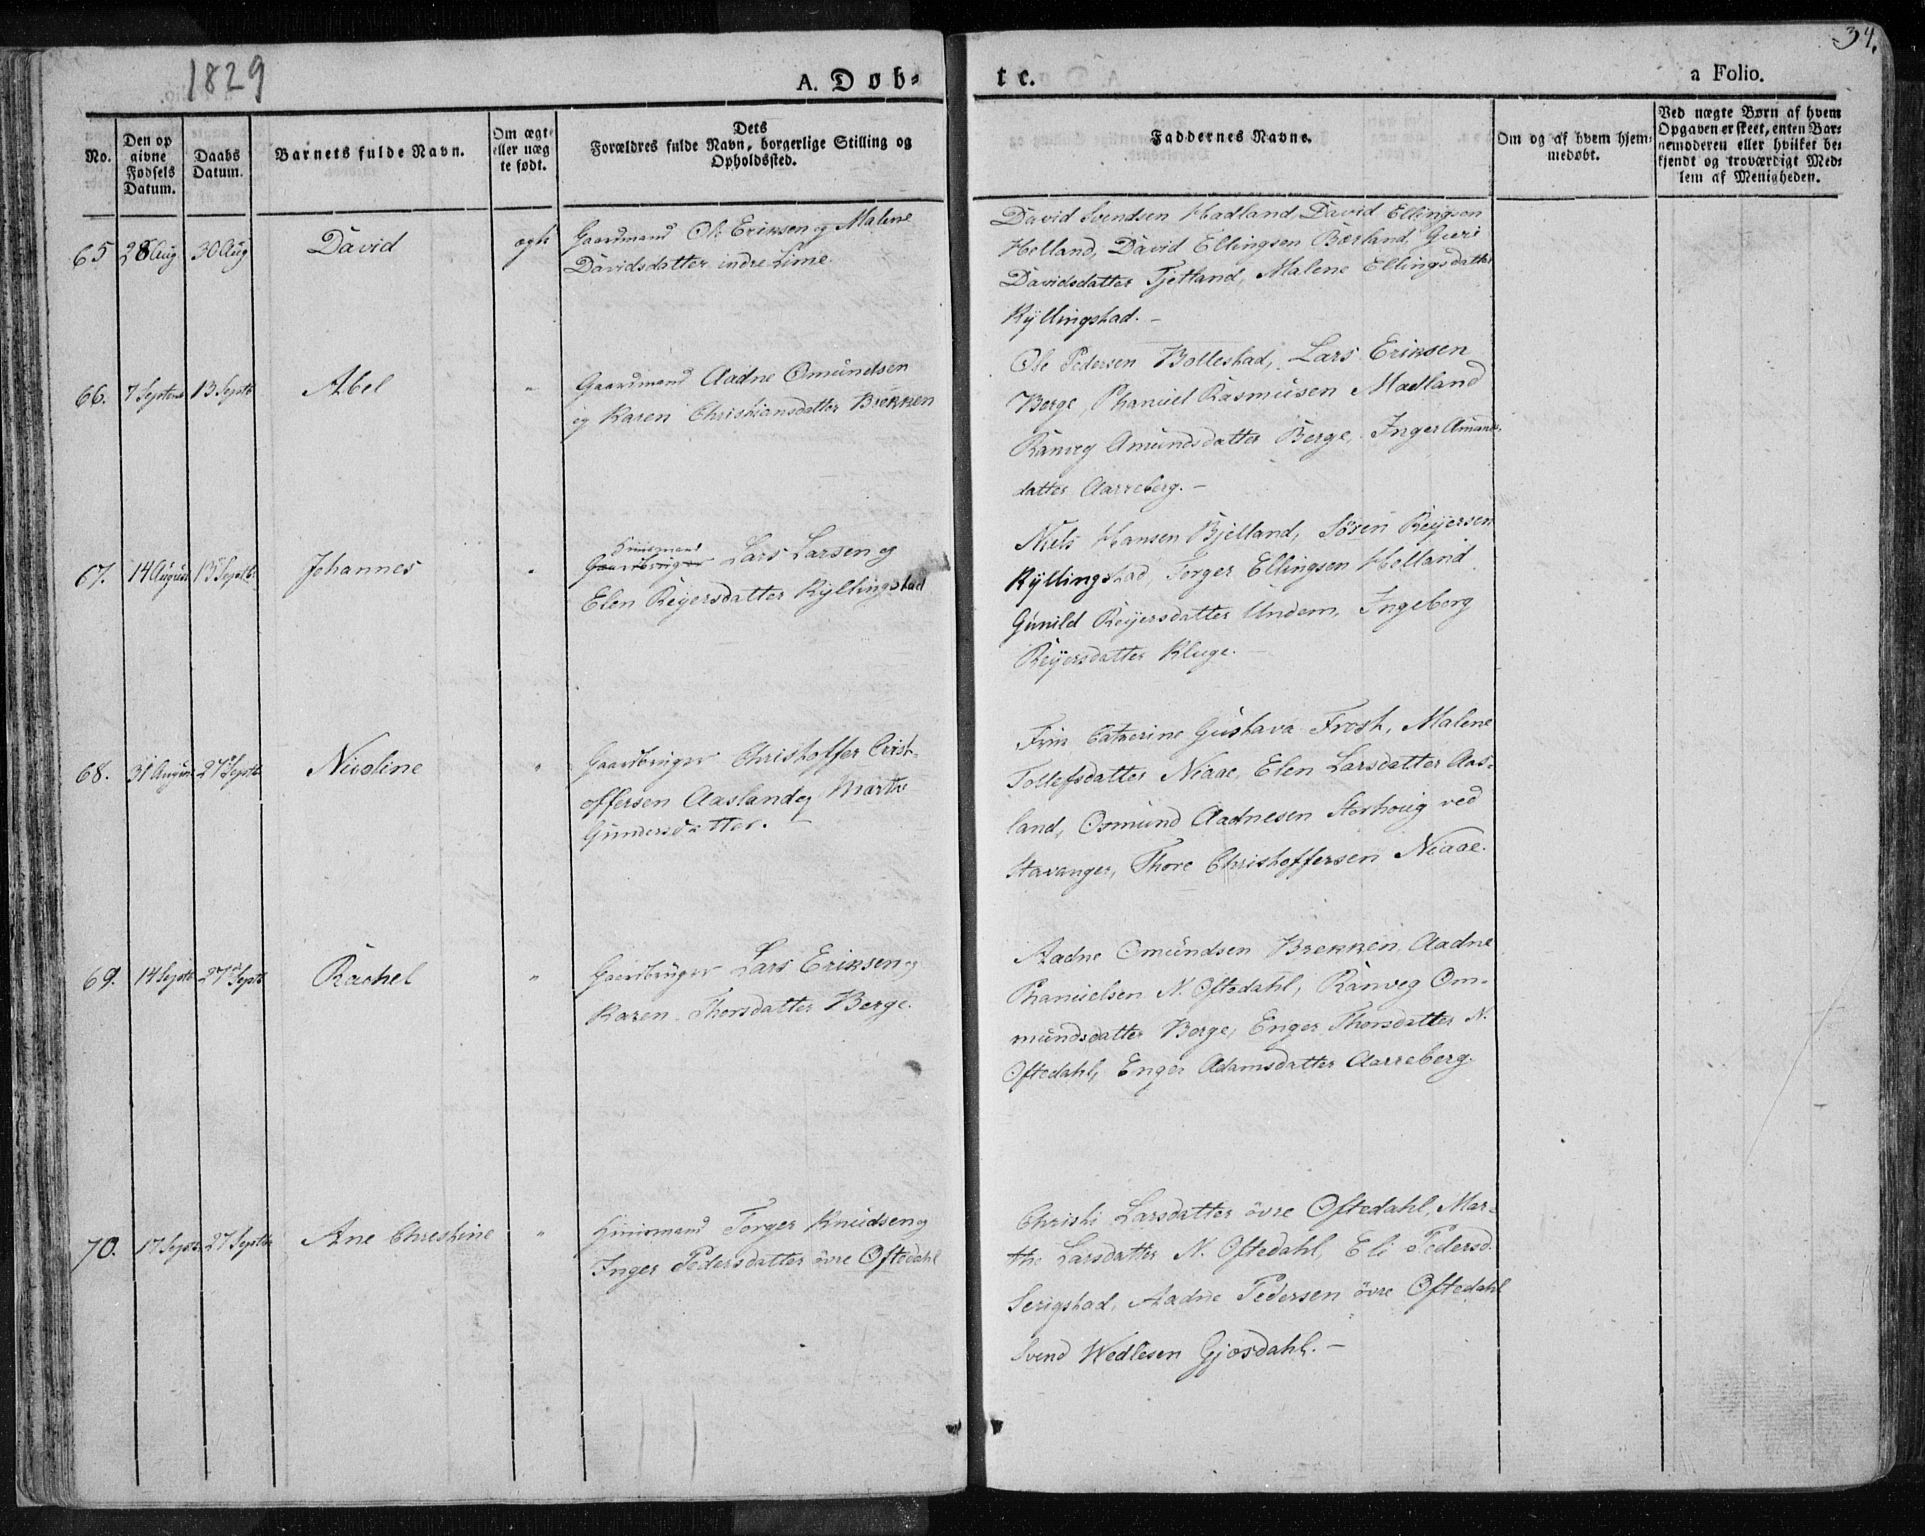 1829
34.
A. Döb-
te.
a Folio.
No.
Den op
givne
Födsels
Datum.
Daabs
Datum.
Barnets fulde Navn.
Om ægte
eller næg
te födt.
Dets
Forældres fulde Navn, borgerlige Stilling og
Opholdssted.
Faddernes Navne.
Om og af hvem hjem-
medöbt.
Ved nægte Börn af hvem
Opgaven er skeet, enten Bar-
nemoderen eller hvilket be-
kjendt og troværdigt Med-
lem af Menigheden.
65 28 Aug 30 Aug David ægte
Gaardmand Ole Eriksen og Malene
Davidsdatter indre Lime.
David Svendsen Hadland, David Ellingsen
Helland, David Ellingsen Bærland, Guri
Davidsdatter Tjetland, Malene Ellingsdatter
Kyllingstad. –
66. 7 Septemb 13 Septb Abel "
Gaardmand Aadne Omundsen
og Karen Christiansdatter Brekken
Ole Pedersen Bollestad, Lars Eriksen
Berge, Phanuel Rasmusen Madland
Ranveg Amundsdatter Berge, Inger Amunds-
datter Aarreberg. –
67. 14 August 13 Septbr Johannes "
Huusmand
Gaardbruger Lars Larsen og
Elen Reyersdatter Kyllingstad
Niels Hansen Bjelland, Sören Reyersen
Kyllingstad, Torger Ellingsen Helland
Gunild Reyersdatter Undem, Ingeborg
Reyersdatter Kluge. –
68. 31 August 27 Septb. Nicoline "
Gaardbruger Christoffer Crist-
offersen Aasland og Marthe
Gundersdatter.
Frue Catherine Gustava Frost, Malene
Tollefsdatter Niaae, Elen Larsdatter Aas-
land, Osmund Aadnesen Storhoug ved
Stavanger, Thore Christoffersen Niaae.
69. 14 Septb 27 Septb Rachel "
Gaardbruger Lars Eriksen og
Karen Thorsdatter Berge.
Aadne Omundsen Brekken, Aadne
Phanuelsen N. Oftedahl, Ranveg Om-
mundsdatter Berge, Enger Thorsdatter N.
Oftedahl, Enger Adamsdatter Aarreberg.
70. 17 Septbr 27 Septbr Ane Chrestine "
Huusmand Torger Knudsen og
Inger Pedersdatter övre Oftedahl
Christi Larsdatter övre Oftedahl, Mar-
the Larsdatter N. Oftedahl, Eli Pedersd.
Serigstad, Aadne Pedersen övre Oftedahl
Svend Wedlesen Gjosdahl. –